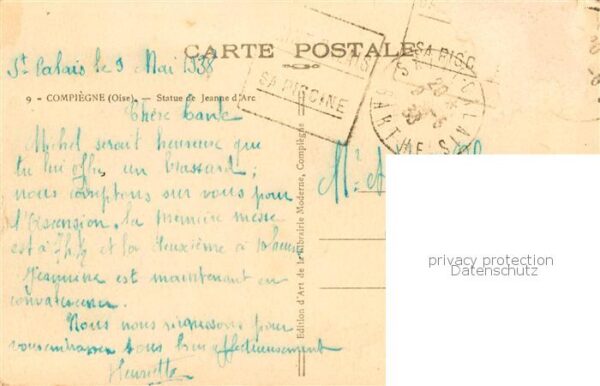 CARTE POSTALE
St Palais le 9 Mai 1938
9 - COMPIÈGNE (Oise). - Statue de Jeanne d'Arc
SA PISCINE
SA PISC
Chère
Michel serait heureuse que
tu lui offre un brassard;
nous comptons sur vous pour
l'Ascension, la première messe
est à 7h½ et la deuxième à 10 heures
Jeannine est maintenant en
convalescence.
Nous nous réjouissons pour
vous embrasser tous bien affectueusement
Henriette
Edition d'Art de la Librairie Moderne, Compiègne
privacy protection
Datenschutz